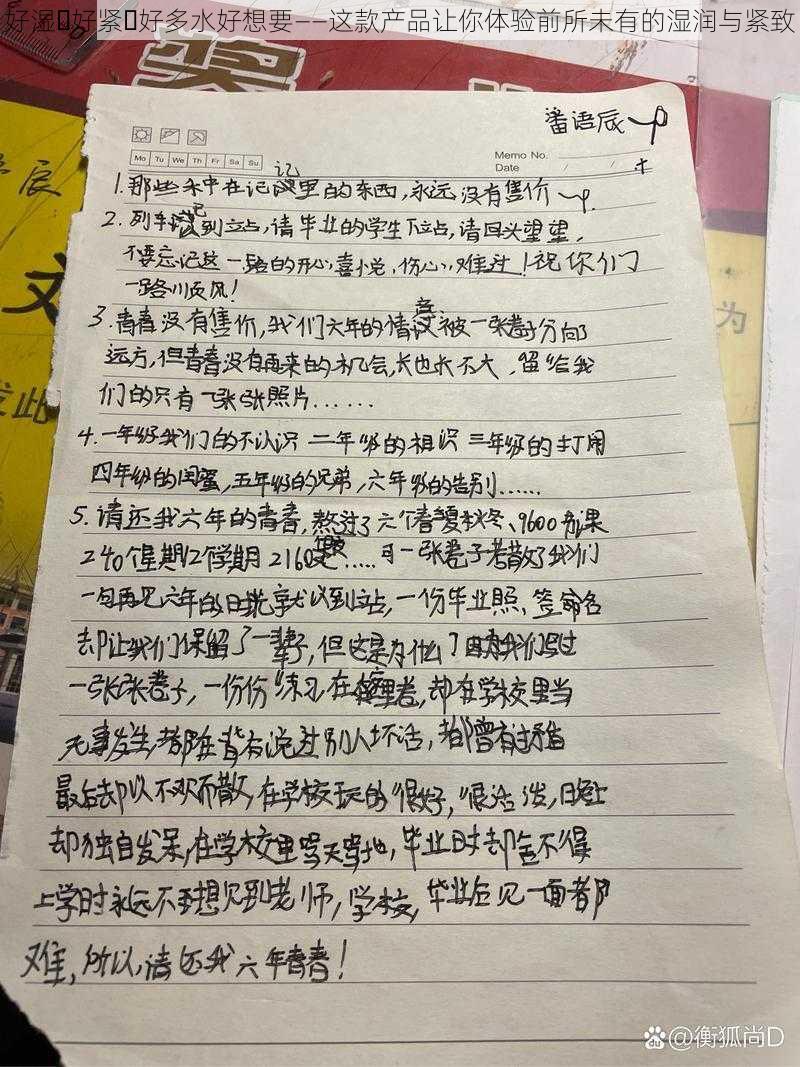 好湿好紧好多水好想要——这款产品让你体验前所未有的湿润与紧致
奖
番语辰
Mo Tu We Th Fr Sa Su
Memo No.
Date / /
记
1.那些年中在记这里的东西,永远没有售价
2.列车到立占,请毕业的学生下立占,请回头望望,
不要忘记这一路的开心,喜悦,伤心,难过!祝你们
一路川页风!
3.青春没有售价,我们六年的情谊被一张卷子分向
远方,但青春没有再来的机会,长也长不大,留给我
们的只有一张张照片......
4.一年级我们的不认识 二年级的相识 三年级的打闹
四年级的闺蜜,五年级的兄弟,六年级的告别......
5.请还我六年的青春,熬过了六个春夏秋冬、9600节课
240个星期12个学期2160天.....可一张卷子考散了我们
一句再见六年的时光就以到立占,一份毕业照,签命名
却让我们保留了一辈子,但这是为什么?因为我们写过
一张张卷子,一份份练习在里卷,却在学校里当
无事发生,都在背有说过别人坏话,都曾有过矛盾
最后却以不欢而散,在学校玩的很好,很活泼,日晚上
却独自发呆,在学校里骂天骂地,毕业日时却舍不得
上学时永远不再想见到老师,学校,毕业后见一面都
难,所以,请还我六年青春!
辰
文
发此
为
Bai du @衡狐尚D